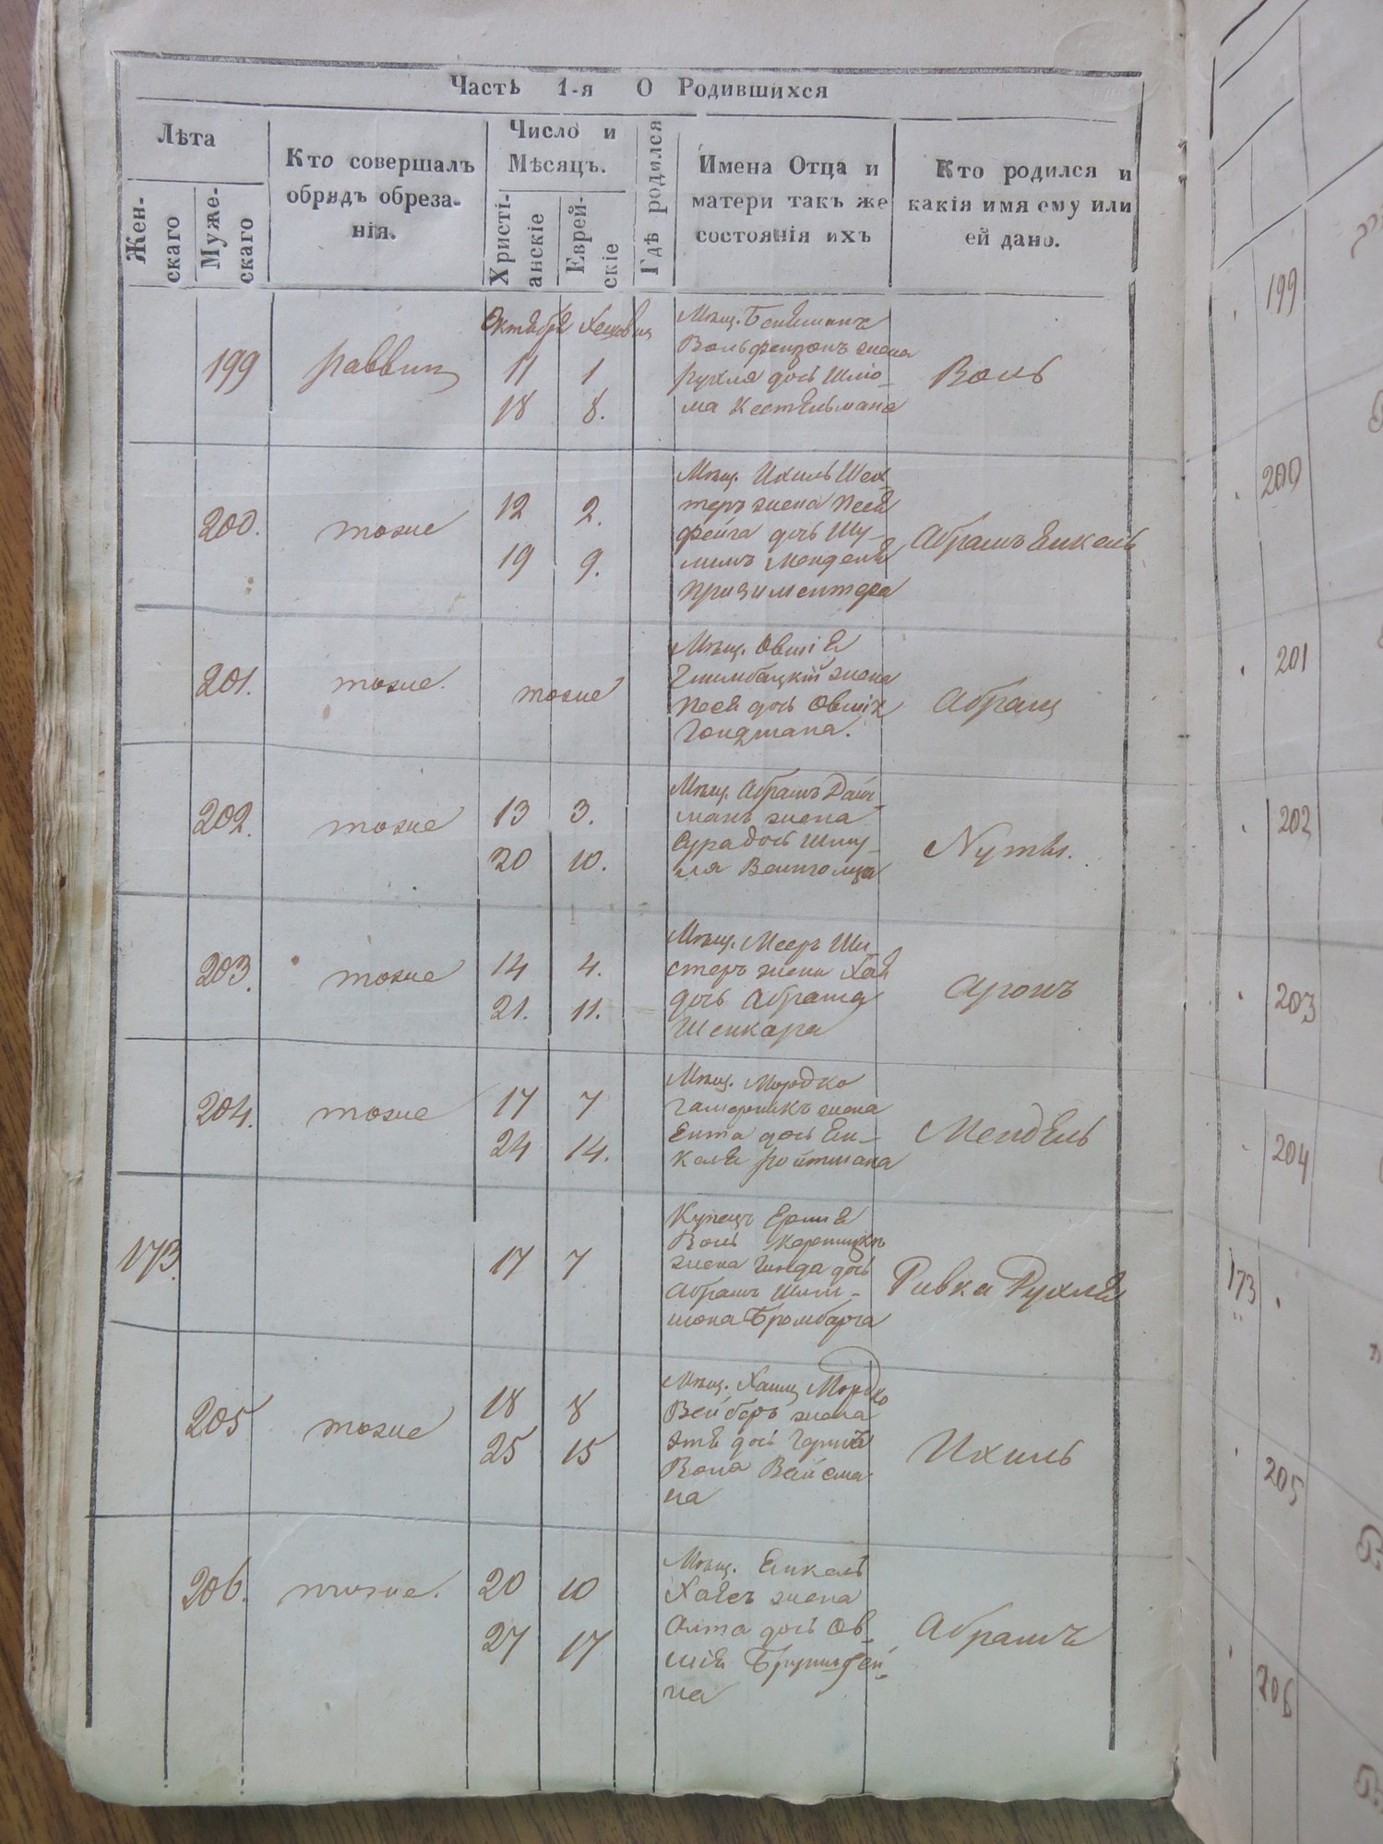 Часть 1-я О Родившихся
Лѣта
Жен-
скаго
Муже-
скаго
Кто совершалъ
обрядъ обреза-
нія.
Число и
Мѣсяцъ.
Христі-
анскіе
Еврей-
скіе
Гдѣ родился
Имена Отца и
матери такъ же
состоянія ихъ
Кто родился и
какія имя ему или
ей дано.
199
раввин
Октября
11
18
1
8.
Мѣщ.
жена
Рухля дочь Шліо-
ма Кестельмана
Воль
200.
тоже
12
19
2.
9.
Мѣщ. Ихиль Шех-
теръ жена Песя
Фейга дочь Шу-
лимъ Менделя
Абрамъ Енкель
201.
тоже.
тоже
Мѣщ. Овшія
жена
Песя дочь Овшія
Абрам
202.
тоже
13
20
3.
10.
Мѣщ. Абрамъ
манъ жена
Сура дочь Шму-
ля
Нутa.
203.
тоже
14
21.
4.
11.
Мѣщ. Мееръ Шу-
стеръ жена Хая
дочь Абрама
Шенкара
Аронъ
204.
тоже
17
24
7
14.
Мѣщ. Мордко
жена
Ента дочь Ен-
келя Ройтмана
Мендель
173.
17
7
Купецъ Ершія
Воль
жена Гинда дочь
Абрамъ Шли-
Бромберга
Ривка Рухля
205
тоже
18
25
8
15
Мѣщ. Хаим Мордко
Вейберъ жена
Этя дочь Герша
Вола Вайсма
на
Ихиль
206.
тоже.
20
27
10
17
Мѣщ. Енкель
Хаесъ жена
Алта дочь Ов-
шія
на
Абрамъ
199
200
201
202
203
204
173
205
206